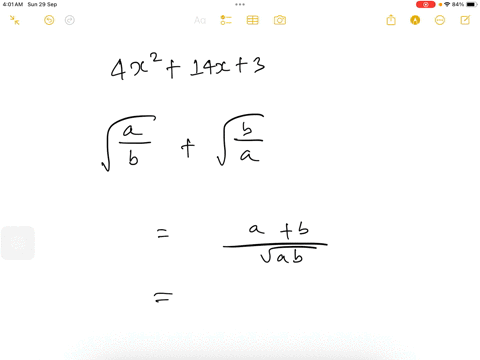 4:01 AM Sun 29 Sep 84%
Aa
4x² + 14x + 3
√(a/b) + √(b/a)
= (a + b)/√(ab)
=